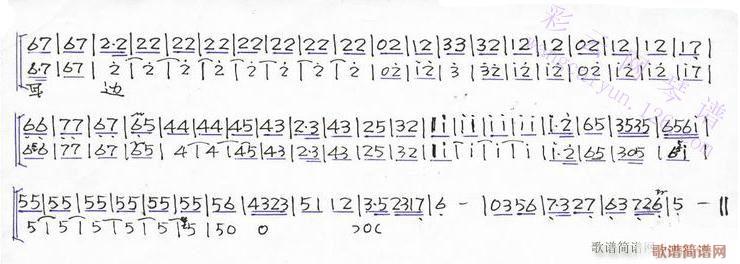 67|67|2·2|22|22|22|22|22|22|22|22|02|12|33|32|12|12|02|12|12|17|
6·7|67|2|2|2|2|2|2|2|2|2|02|12|3|32|12|12|02|12|12|17|
耳 边
66|77|67|65|44|44|45|43|2·3|43|25|32|1i|ii|ii|ii|i·2|65|3535|656i|
67|65|4|4|45|43|2·3|43|25|32|i·2|65|305|
55|55|55|55|55|55|56|4323|51|12|3·52317|6-|0356|7·327|63726|5-‖
5|5|5|5|5|5|50 0
歌谱简谱网
歌谱简谱网